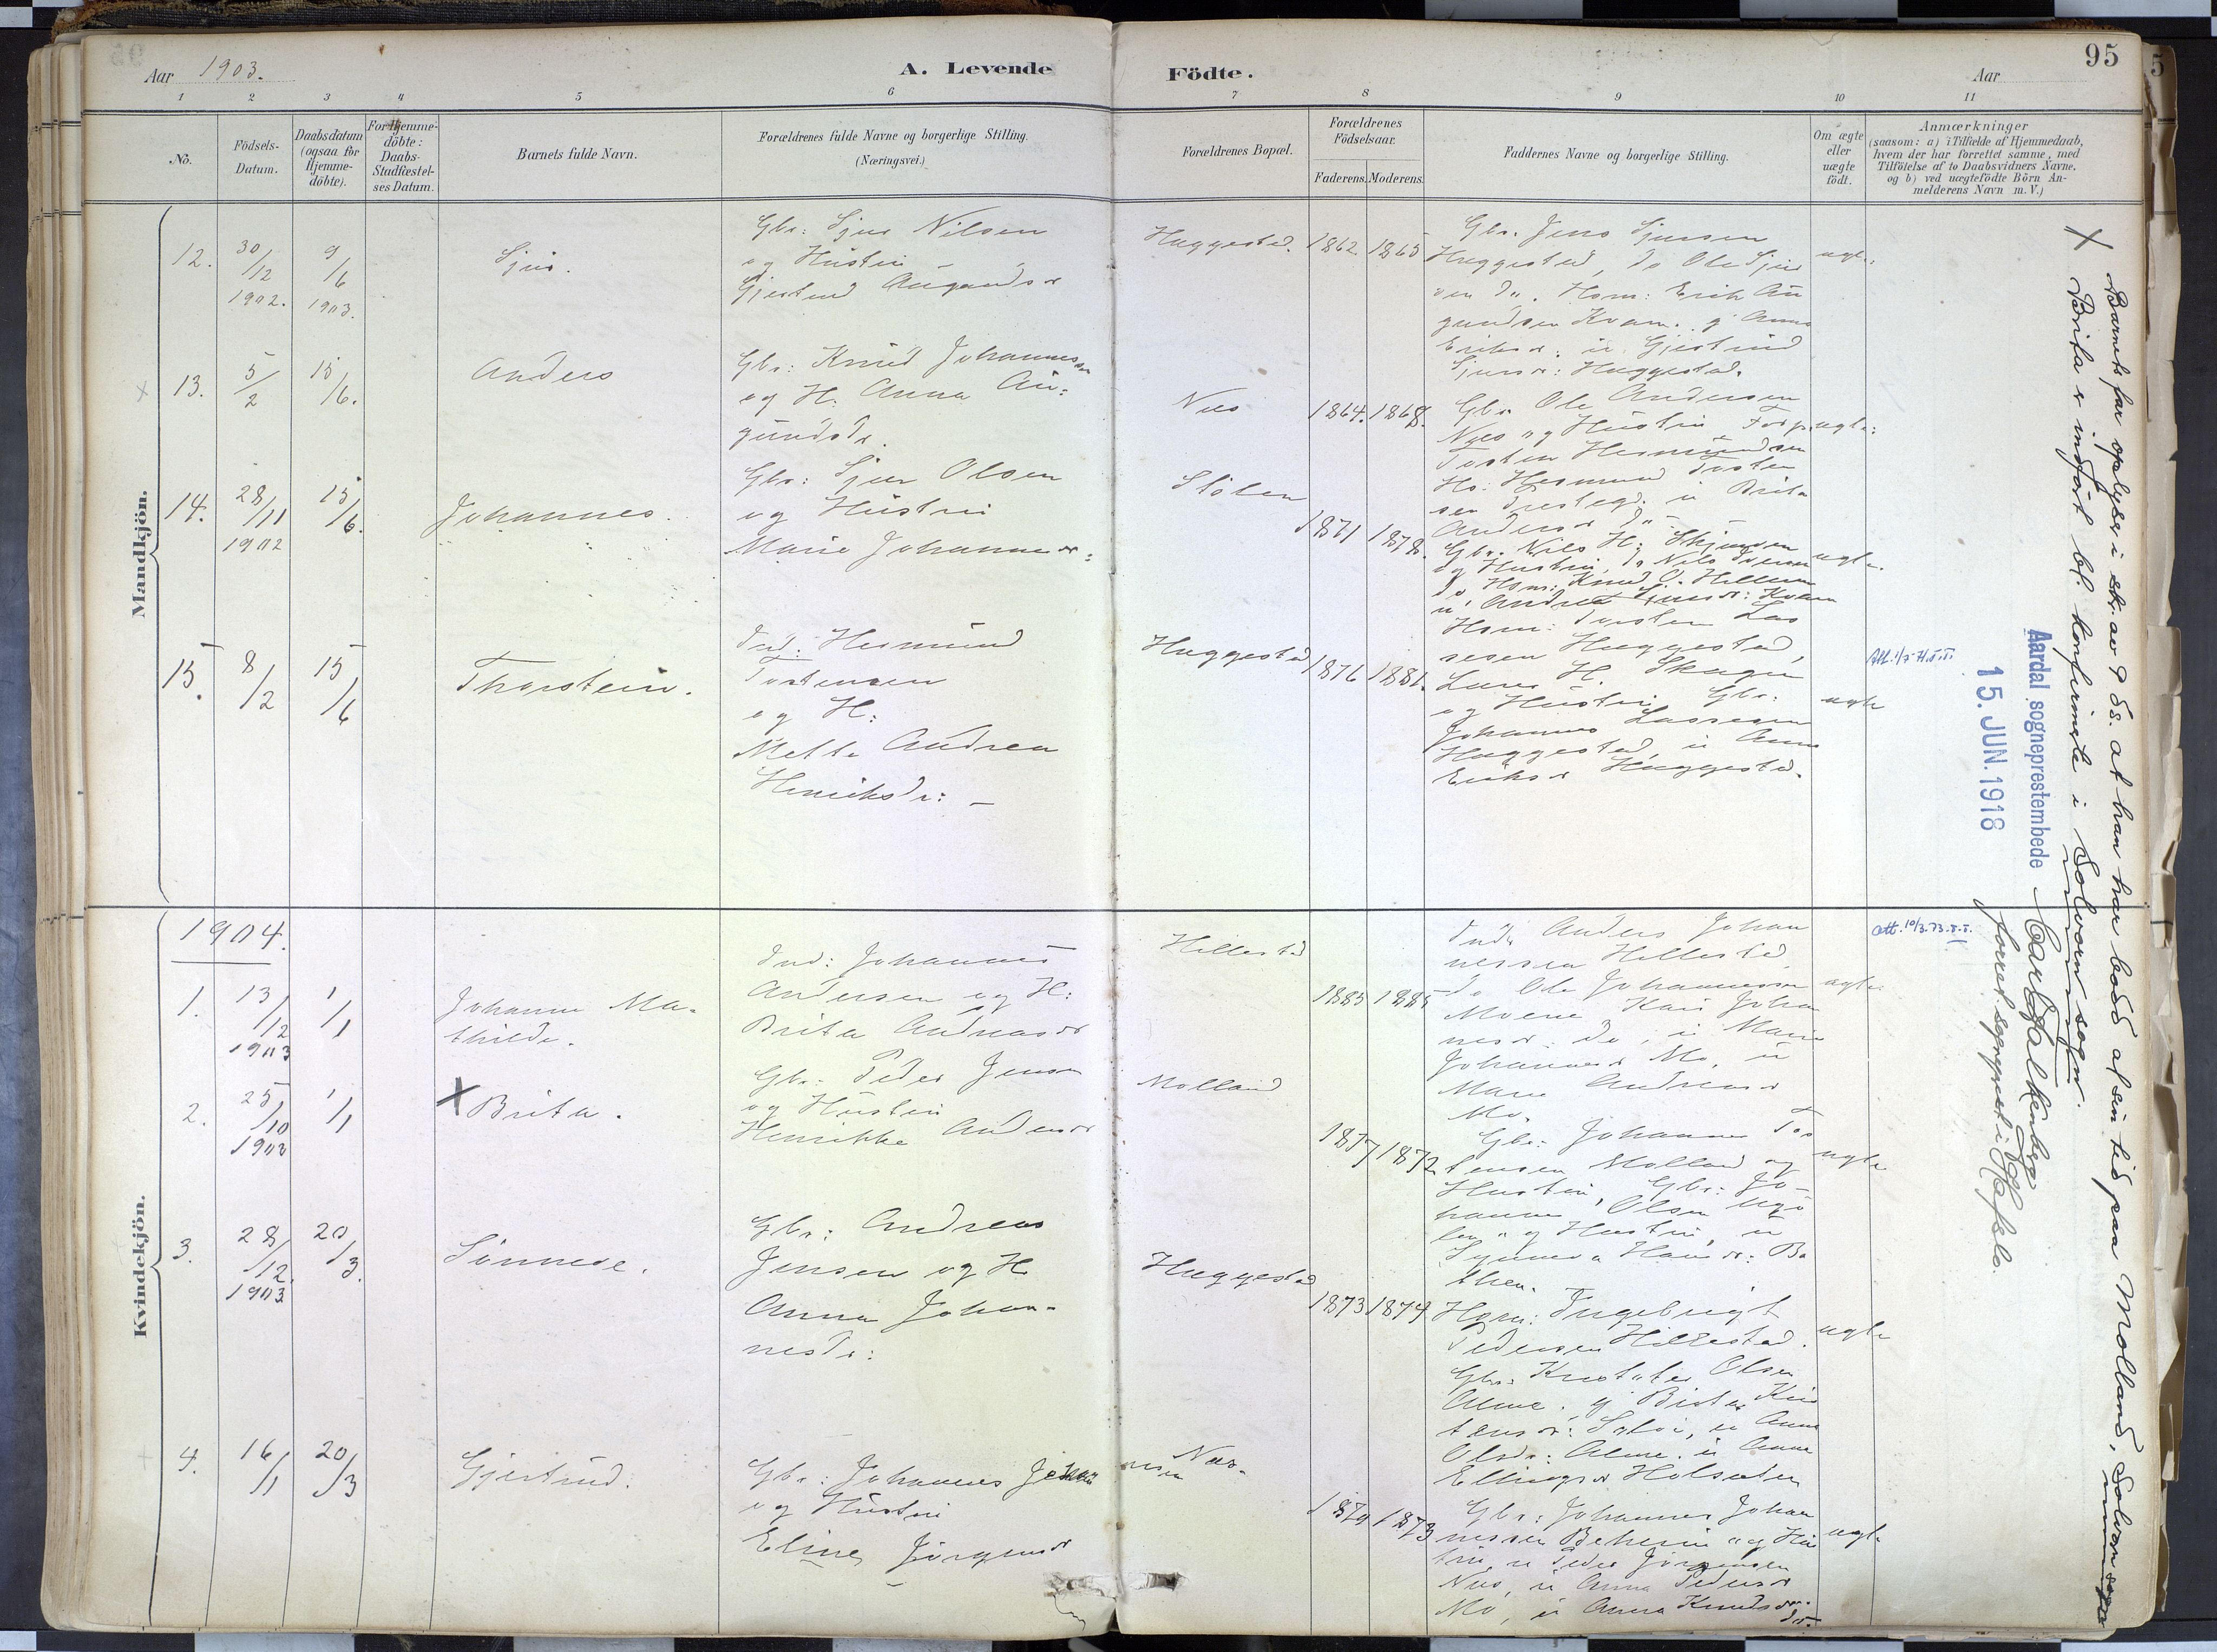 95
Aar 1903.
A. Levende Födte.
Aar
1 2 3 4 5 6 7 8 9 10 11
No.
Födsels-
Datum.
Daabsdatum
(ogsaa for
Hjemme-
döbte).
For Hjemme-
döbte:
Daabs-
Stadfæstel-
ses Datum.
Barnets fulde Navn.
Forældrenes fulde Navne og borgerlige Stilling.
(Næringsvei.)
Forældrenes Bopæl.
Forældrenes
Födselsaar.
Faderens.
Moderens.
Faddernes Navne og borgerlige Stilling.
Om ægte
eller
uægte
födt.
Anmærkninger
(saasom: a) i Tilfælde af Hjemmedaab,
hvem der har forrettet samme, med
Tilföielse af to Daabsvidners Navne.
og b) ved uægtefödte Börn An-
melderens Navn m. V.)
Mandkjön.
12.
30/12
1902.
9/6
1903.
Sjur.
Gbr: Sjur Nilsen
og Hustru
Gjertrud Augundsdr
Huggestad.
1862.
1865
Gbr. Jens Sjursen
Huggestad, do Ole Sjur
sen do. Hsm: Erik Au
gundsen Kvam. g Anna
Eriksdr: u Gjertrud
Sjursdr: Huggestad.
ægte:
13.
5/2
15/6.
Anders
Gbr: Knud Johannessen
og H: Anna Au:
gundsdr.
Nus
1864.
1868.
Gbr Ole Andersen
Nus og Hustru,
Tosten Hermundsen
Hermund Tosten
sen u Brita
Andersdr do
ægte:
14.
28/11
1902
15/6.
Johannes.
Gbr: Sjur Olsen
og Hustru
Marie Johannesdr:
1871
1878.
Gbr. Nils H:
og Hustru, do Nils
Hsm: Knud O.
u. Kvam
ægte.
15.
8/2
15/6
Thorstein.
Ind: Hermund
Tostensen
og H:
Mette Andrea
Henriksdr: –
Huggestad
1876
1881.
Hsm: Torsten Las
sesen Huggestad,
Lars H. Skagen
og Hustru Gbr:
Johannes Lassesen
Huggestad, u Anna
Eriksdr Huggestad.
ægte
Kvindekjön.
1904.
1.
13/12
1903
1/1
Johanne Ma-
thilde.
Ind: Johannes
Andersen og H:
Brita Andreasdr
Hillestad
1885
1885
Inds Anders Johan
nessen Hillestad
do Ole Johannessen
Moene Kari Johan
nesdr: do, u Marie
Johannesdr Mo, u
Marie Andreasdr
Mo.
ægte
att. 10/3.73.
2.
25/10
1903
1/1
X Brita.
Gbr: Peder Jensen
og Hustru
Henrikke Andersdr
Molland
1877
1872
Gbr: Johannes Tos
tensen Molland og
Hustru, Gbr: Jo-
hannes Olsen
og Hustru, u
Synneva Hansdr: Ba
then.
ægte
3.
28/12.
1903
20/3.
Sünneve.
Gbr: Andreas
Jensen og H
Anna Johan-
nesdr:
Huggestad
1873
1874
Hsm: Ingebrigt
Pedersen Hillestad.
Gbr: Kristofer Olsen
Alme. g Brita Kris
Anna
Olsdr: Alme. u Anna
Ellingsdr Holsæter
ægte
4.
16/1
20/3
Gjertrud.
Gbr: Johannes Johan
nesen
og Hustru
Eline Jörgensdr
Nus.
1870
1873
Gbr: Johannes Johan
nessen Beheim og Hus
tru, u Peder Jörgensen
Nus, u Anna Pedersdr
Mo, u Anna Knudsdr:
do.
ægte
X Barnets far oplyser i skr. av 9 ds. at han har bodd al sin tid paa Molland, Solvorn sogn
Brita er indfört bl. konfirmte i Solvorn sogn.
Aardal sogneprestembede
15. JUN. 1918
Carl Falkenberg
forret. sogneprest i Hafslo.